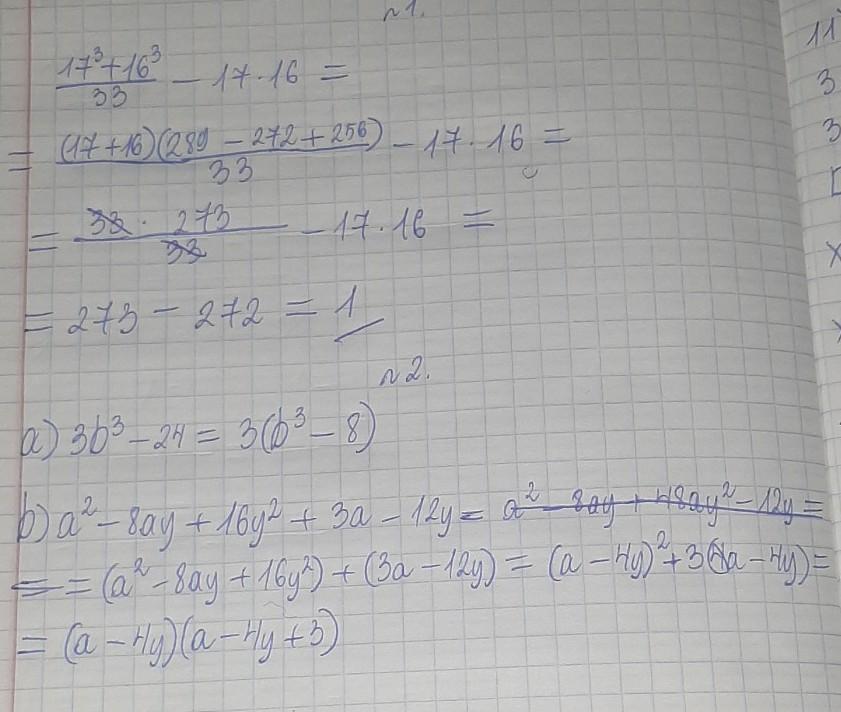 №1.
\frac{17³+16³}{33} − 17·16 =
= \frac{(17+16)(289 − 272 + 256)}{33} − 17·16 =
= \frac{33 · 273}{33} − 17·16 =
= 273 − 272 = 1
№2.
a) 3b³ − 24 = 3(b³ − 8)
b) a² − 8ay + 16y² + 3a − 12y = a² − 8ay + 48ay² − 12y =
= = (a² − 8ay + 16y²) + (3a − 12y) = (a − 4y)² + 3(a − 4y) =
= (a − 4y)(a − 4y + 3)
11
3
3